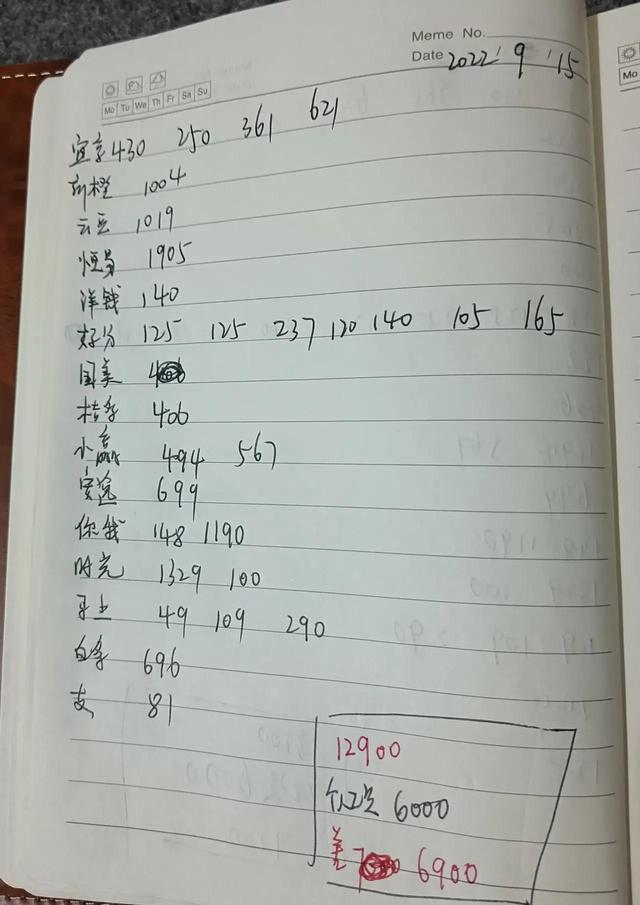 Meme No.
Date 2022.9.15
Mo Tu We Th Fr Sa Su
Mo
宜享 430 250 361 621
新橙 1004
云豆 1019
恒易 1905
洋钱 140
好分 125 125 237 120 140 105 165
国美
桔多 406
小赢 494 567
安逸 699
你我 148 1190
时光 1329 100
49 109 290
白条 696
支 81
12900
6000
差 6900